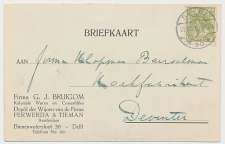 BRIEFKAART
AAN Firma Klopman Banselman
Koekfabrikant
Deventer
Firma G. J. BRUIGOM
Koloniale Waren en Comestibles
Depôt der Wijnen van de Firma
FERWERDA & TIEMAN
Amsterdam.
Binnenwatersloot 36 - Delft
Telefoon No. 80